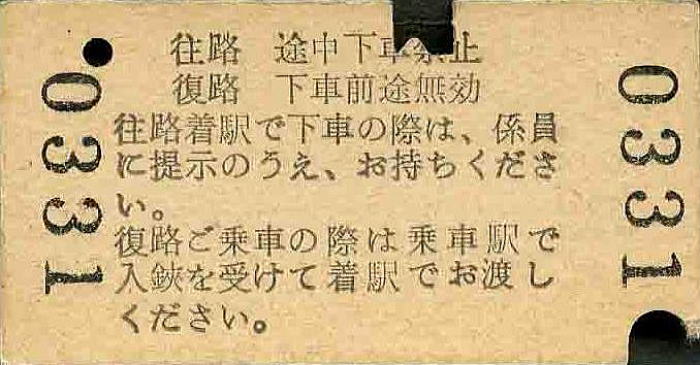 往路 途中下車禁止
復路 下車前途無効
往路着駅で下車の際は、係員
に提示のうえ、お持ちくださ
い。
復路ご乗車の際は乗車駅で
入鋏を受けて着駅でお渡し
ください。
0331
0331